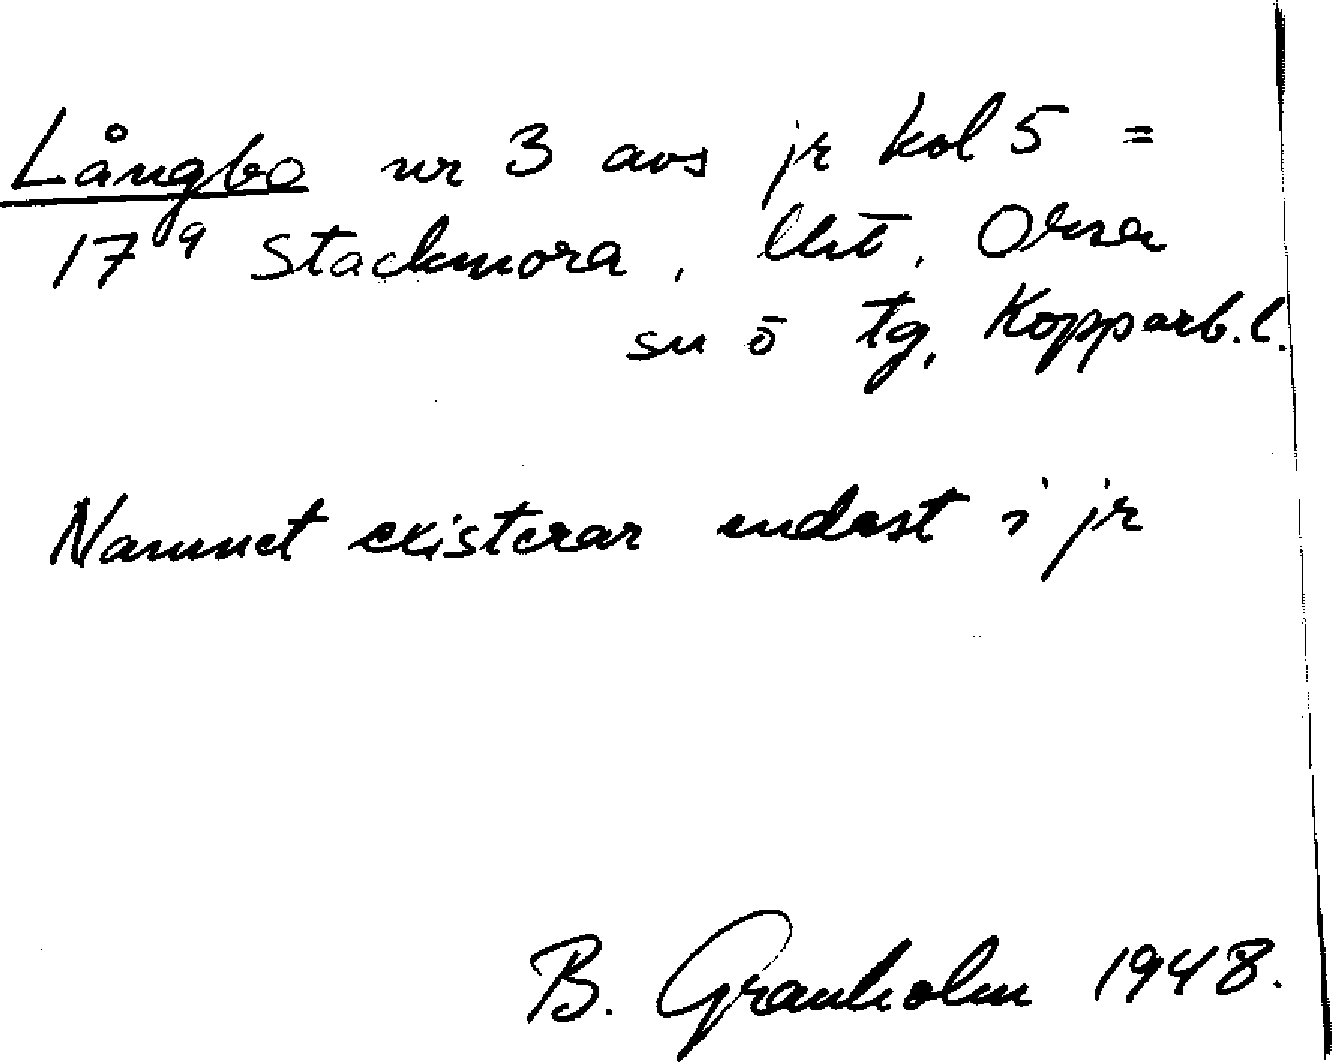 Långbo nr 3 avs jr kol 5 =
17⁹ Stackmora, Orsa
sn ö tg, Kopparb.l.
Namnet existerar endast i jr
B. Granholm 1948.